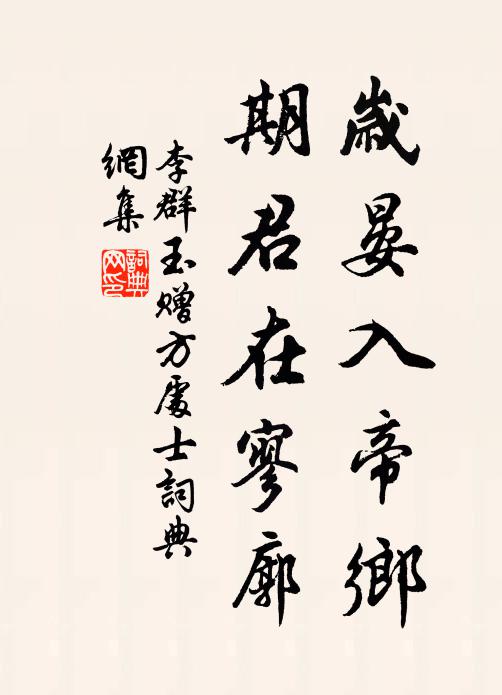 歲晏入帝鄉
期君在寥廓
李群玉贈方處士詞典
網集
詞典
网印